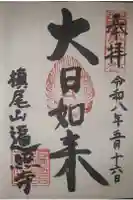 奉拝
令和八年五月十六日
大日如来
槇尾山遍照寺